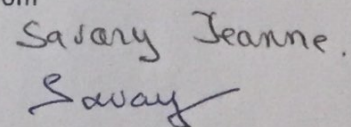 om
Savary Jeanne.
Savay